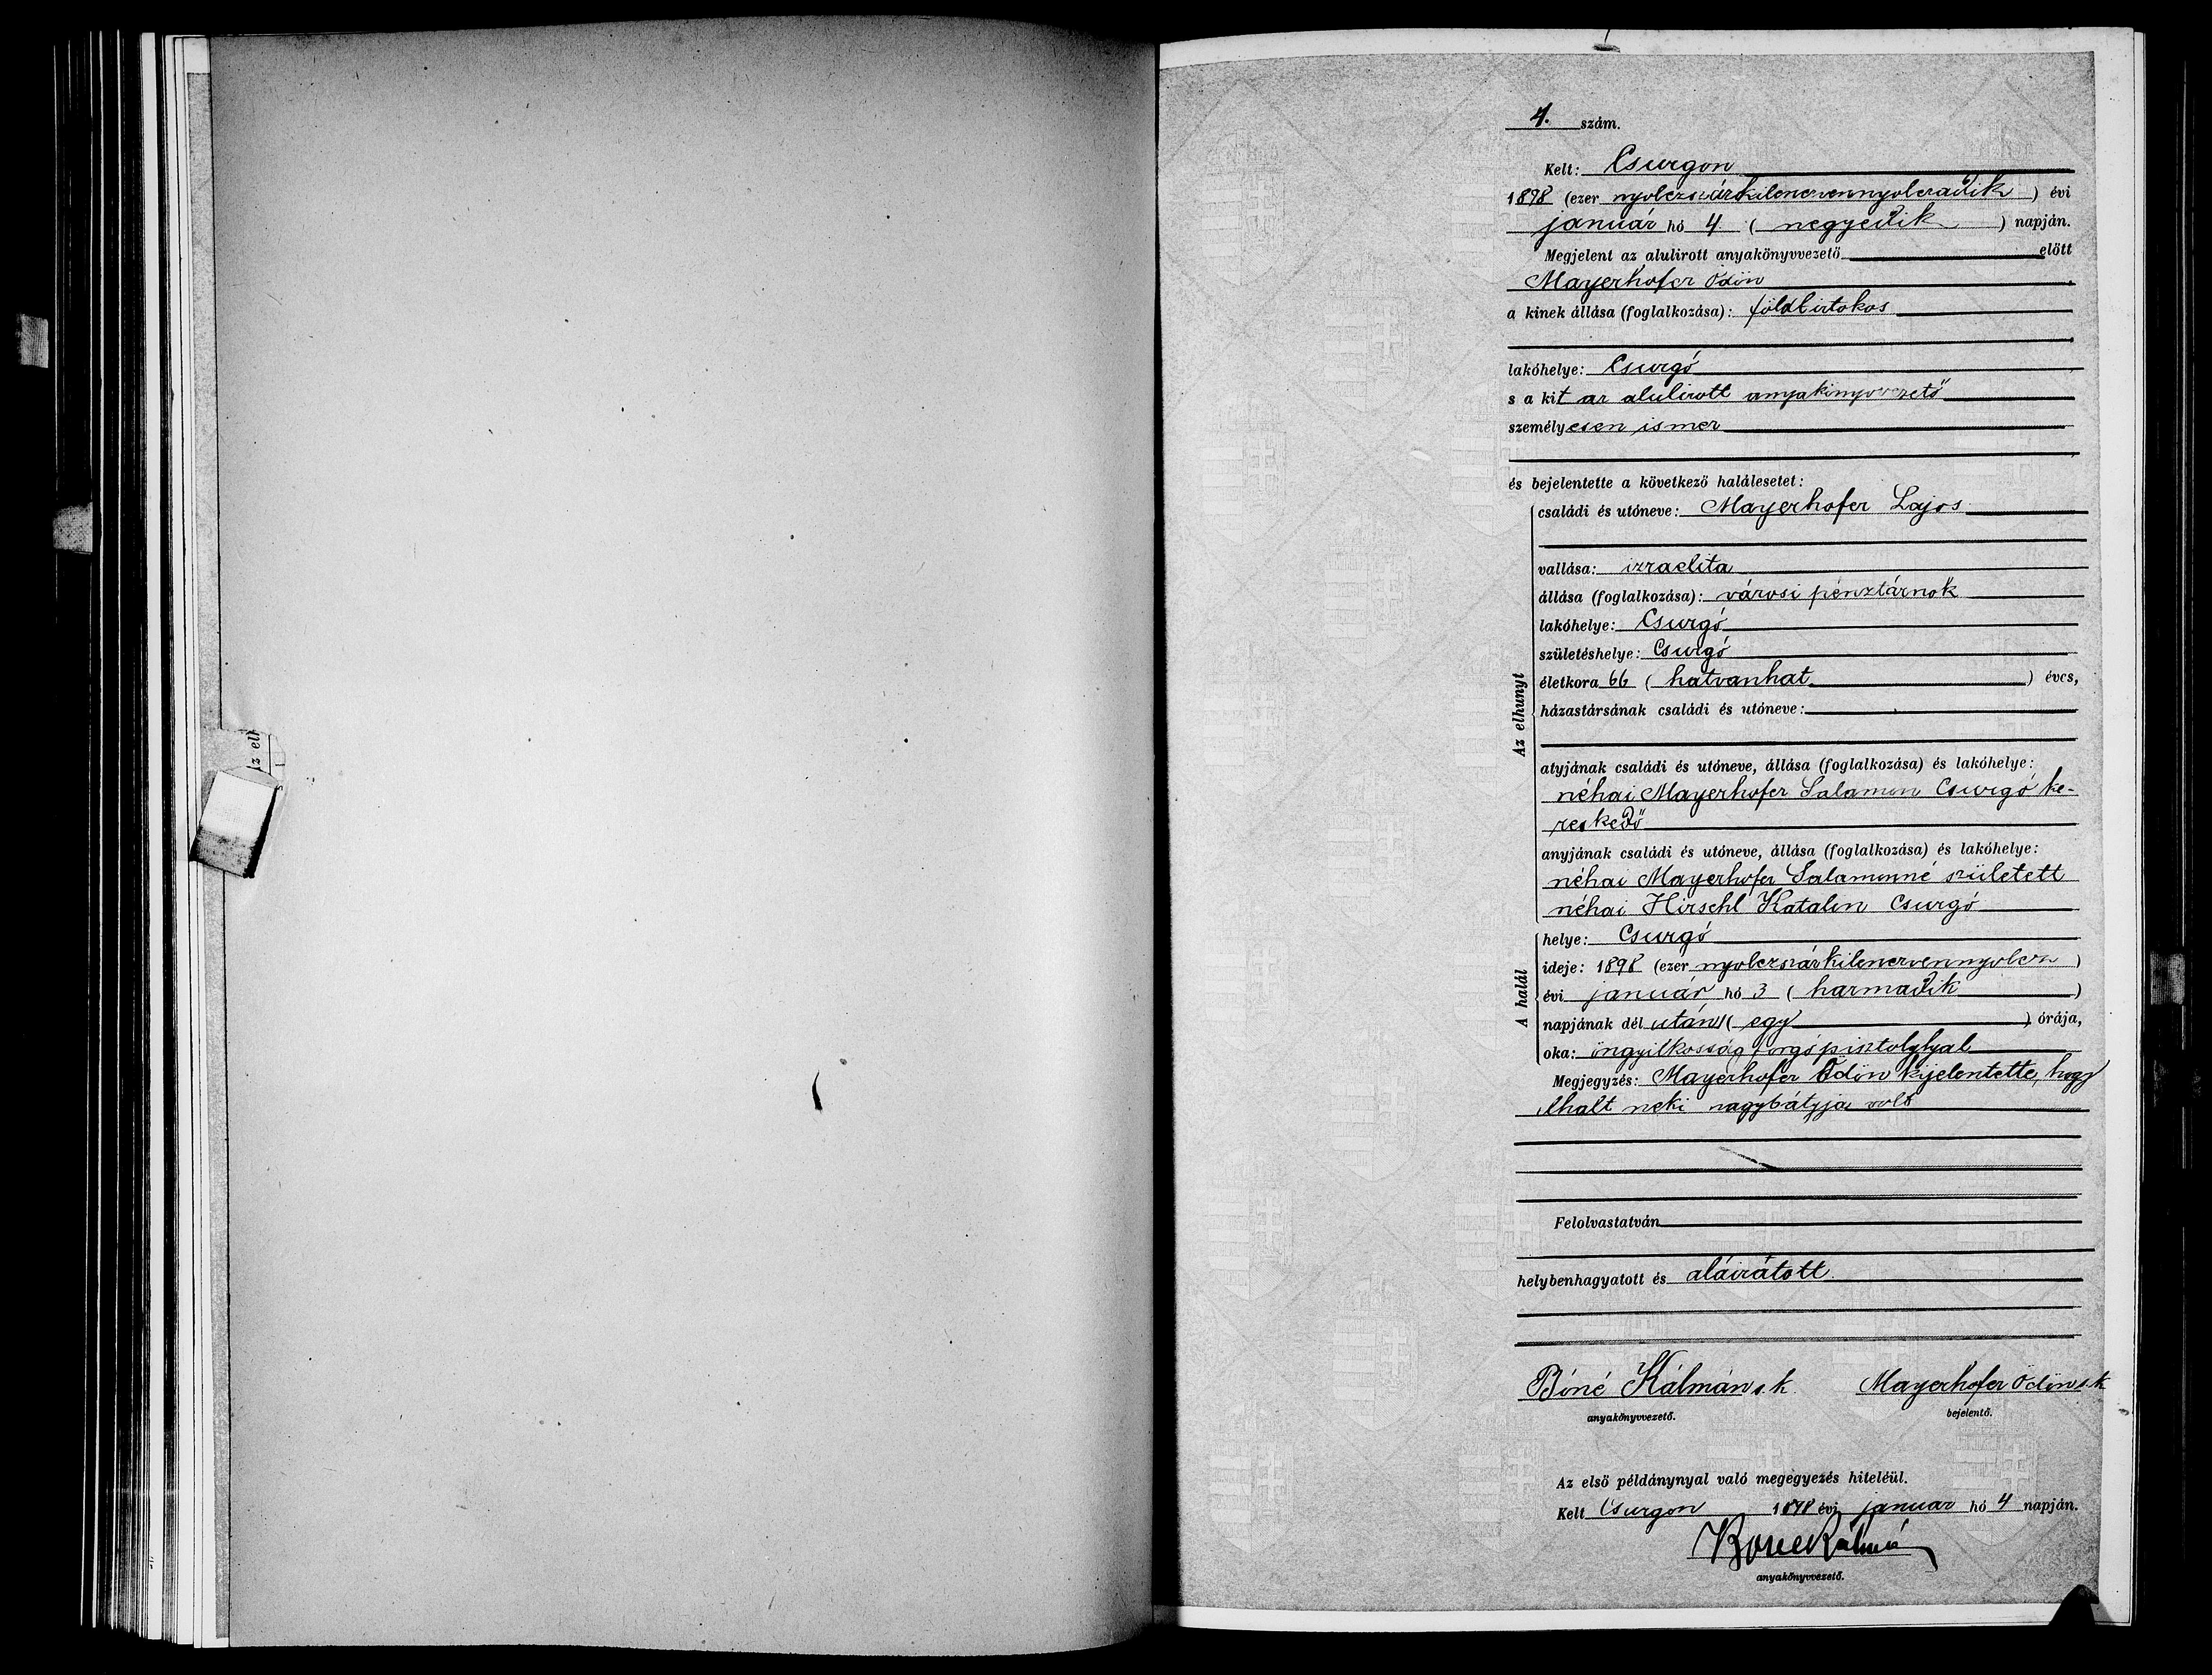 4. szám.
Kelt: Csurgon
1898 (ezer nyolczszázkilenczvennyolczadik) évi
január hó 4 (negyedik) napján.
Megjelent az alulirott anyakönyvvezető előtt
Mayerhofer Ödön
a kinek állása (foglalkozása): földbirtokos
lakóhelye: Csurgó
s a kit az alulirott anyakönyvvezető
személyesen ismer
és bejelentette a következő halálesetet:
Az elhunyt
családi és utóneve: Mayerhofer Lajos
vallása: izraelita
állása (foglalkozása): városi pénztárnok
lakóhelye: Csurgó
születéshelye: Csurgó
életkora 66 (hatvanhat) éves,
házastársának családi és utóneve:
atyjának családi és utóneve, állása (foglalkozása) és lakóhelye:
néhai Mayerhofer Salamon Csurgó ke-
reskedő
anyjának családi és utóneve, állása (foglalkozása) és lakóhelye:
néhai Mayerhofer Salamonné született
néhai Hirschl Katalin Csurgó
A halál
helye: Csurgó
ideje: 1898 (ezer nyolczszázkilenczvennyolcz)
évi január hó 3 (harmadik)
napjának dél után 1 (egy) órája,
oka: öngyilkosság forgópisztolylyal
Megjegyzés: Mayerhofer Ödön kijelentette, hogy
elhalt neki nagybátyja volt
Felolvastatván
helybenhagyatott és aláiratott.
Bóné Kálmán s.k. Mayerhofer Ödön s.k
anyakönyvvezető. bejelentő.
Az első példánynyal való megegyezés hiteléül.
Kelt Csurgon 1898 évi január hó 4 napján.
Bóné Kálmán
anyakönyvvezető.
Az el